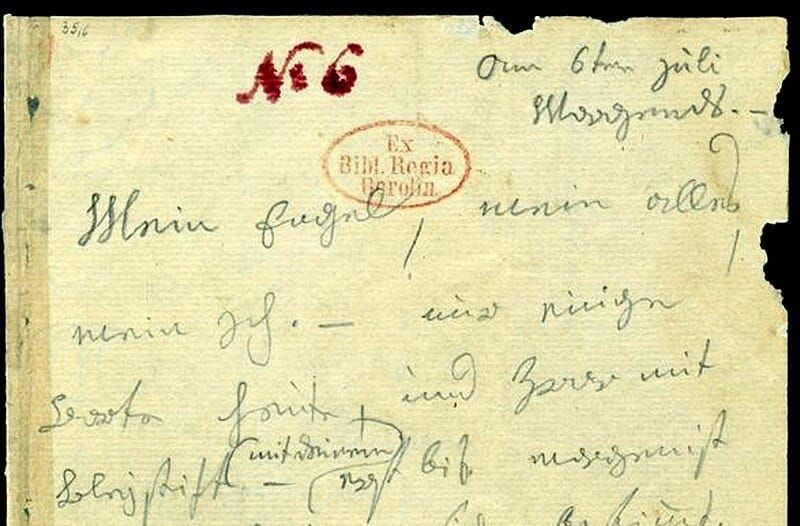 35,6
No 6
am 6ten juli
Morgends. —
Ex
Bibl. Regia
Berolin.
Mein Engel, mein alles,
mein Ich. — nur einige
Worte heute, und zwar mit
(mit deinem)
Bleystift — erst bis morgen ist